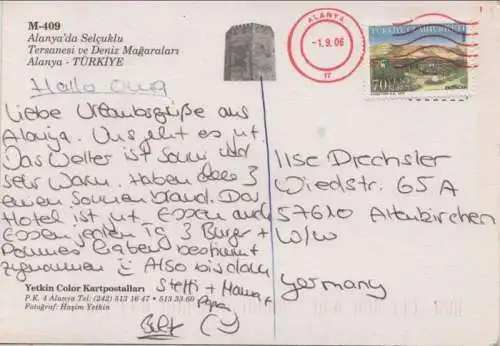 M-409
Alanya'da Selçuklu
Tersanesi ve Deniz Mağaraları
Alanya - TÜRKİYE
Hallo Oma
Liebe Urlaubsgrüße aus
Alanja. Uns geht es gut.
Das Wetter ist Sonnig und
sehr Warm. Haben alle 3
einen Sonnenbrand. Das
Hotel ist gut. Essen auch
Essen jeden Tag 3 Burger +
Pommes. Haben bestimmt
zugenommen Also bis dann
Steffi + Mama +
Papa
Yetkin Color Kartpostalları
P.K. 4 Alanya Tel: (242) 513 16 47 • 513 33 60
Fotoğraf: Haşim Yetkin
ALANYA
-1.9.06
17
TÜRKİYE CUMHURİYETİ
70
Ilse Drechsler
Wiedstr. 65A
57610 Altenkirchen
W/W
Germany